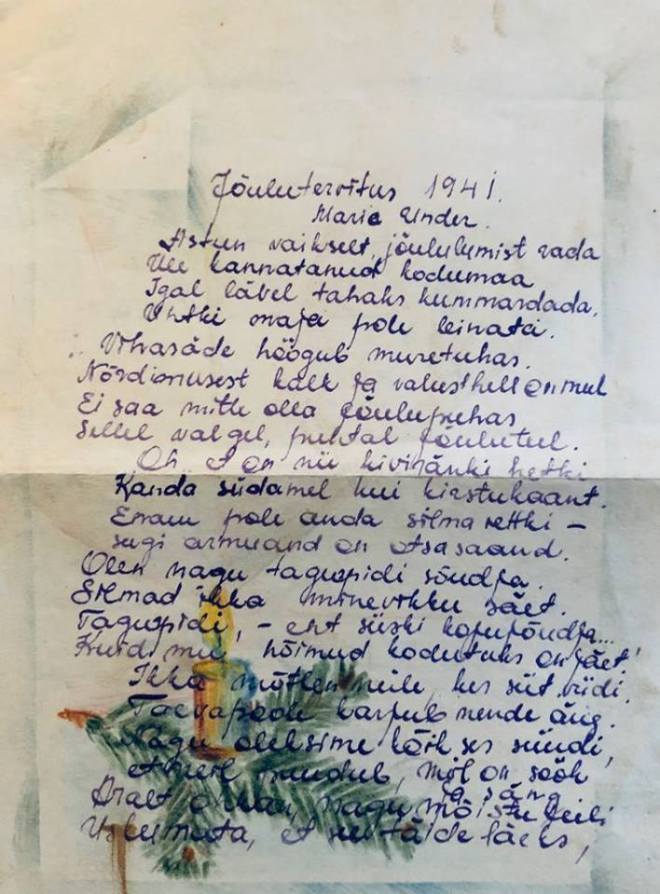 Jõulutervitus 1941.
Marie Under.
Astun vaikselt, jõululumist rada
Üle kannatanud kodumaa
Igal lävel tahaks kummardada,
Ühtki maja pole leinata.
Vihasäde hõõgub muretuhas.
Nõrdimusest kalk ja valust hell on mul
Ei saa mitte olla jõulupuhas
Sellel valgel, puhtal jõulutul.
Oh, et on nii kiviränki hetki
Kanda südamel kui kirstukaant.
Enam pole anda silmavettki –
seegi armuand on otsa saand.
Olen nagu tagurpidi sõudja.
Silmad ikka minevikku säet.
Tagurpidi, – ent siiski kojujõudja...
Kuid mu hõimud kodutuks on jäet!
Ikka mõtlen neile, kes siit viidi.
Taeva poole karjub nende äng.
Nagu oleksime kõik ses süüdi,
et meil on söök
ja säng
Aralt nagu mõistu
Uskumata, et täide läeks,